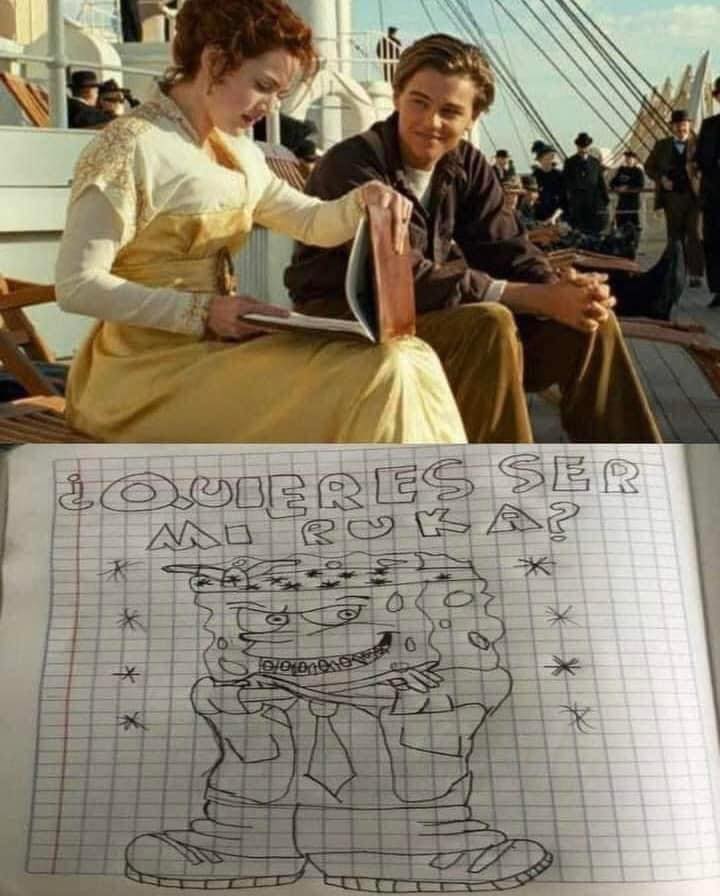 ¿QUIERES SER
MI RUKA?